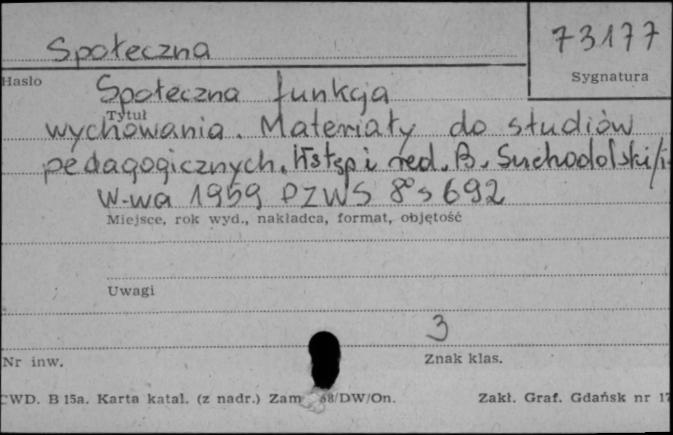 Społeczna
73177
Hasło
Sygnatura
Społeczna funkcja
Tytuł
wychowania. Materiały do studiów
pedagogicznych. Wstęp i red. B. Suchodolski/i
W-wa 1959 PZWS 8° s 692
Miejsce, rok wyd., nakładca, format, objętość
Uwagi
3
Nr inw.
Znak klas.
CWD. B 15a. Karta katal. (z nadr.) Zam 68/DW/On.
Zakł. Graf. Gdańsk nr 17